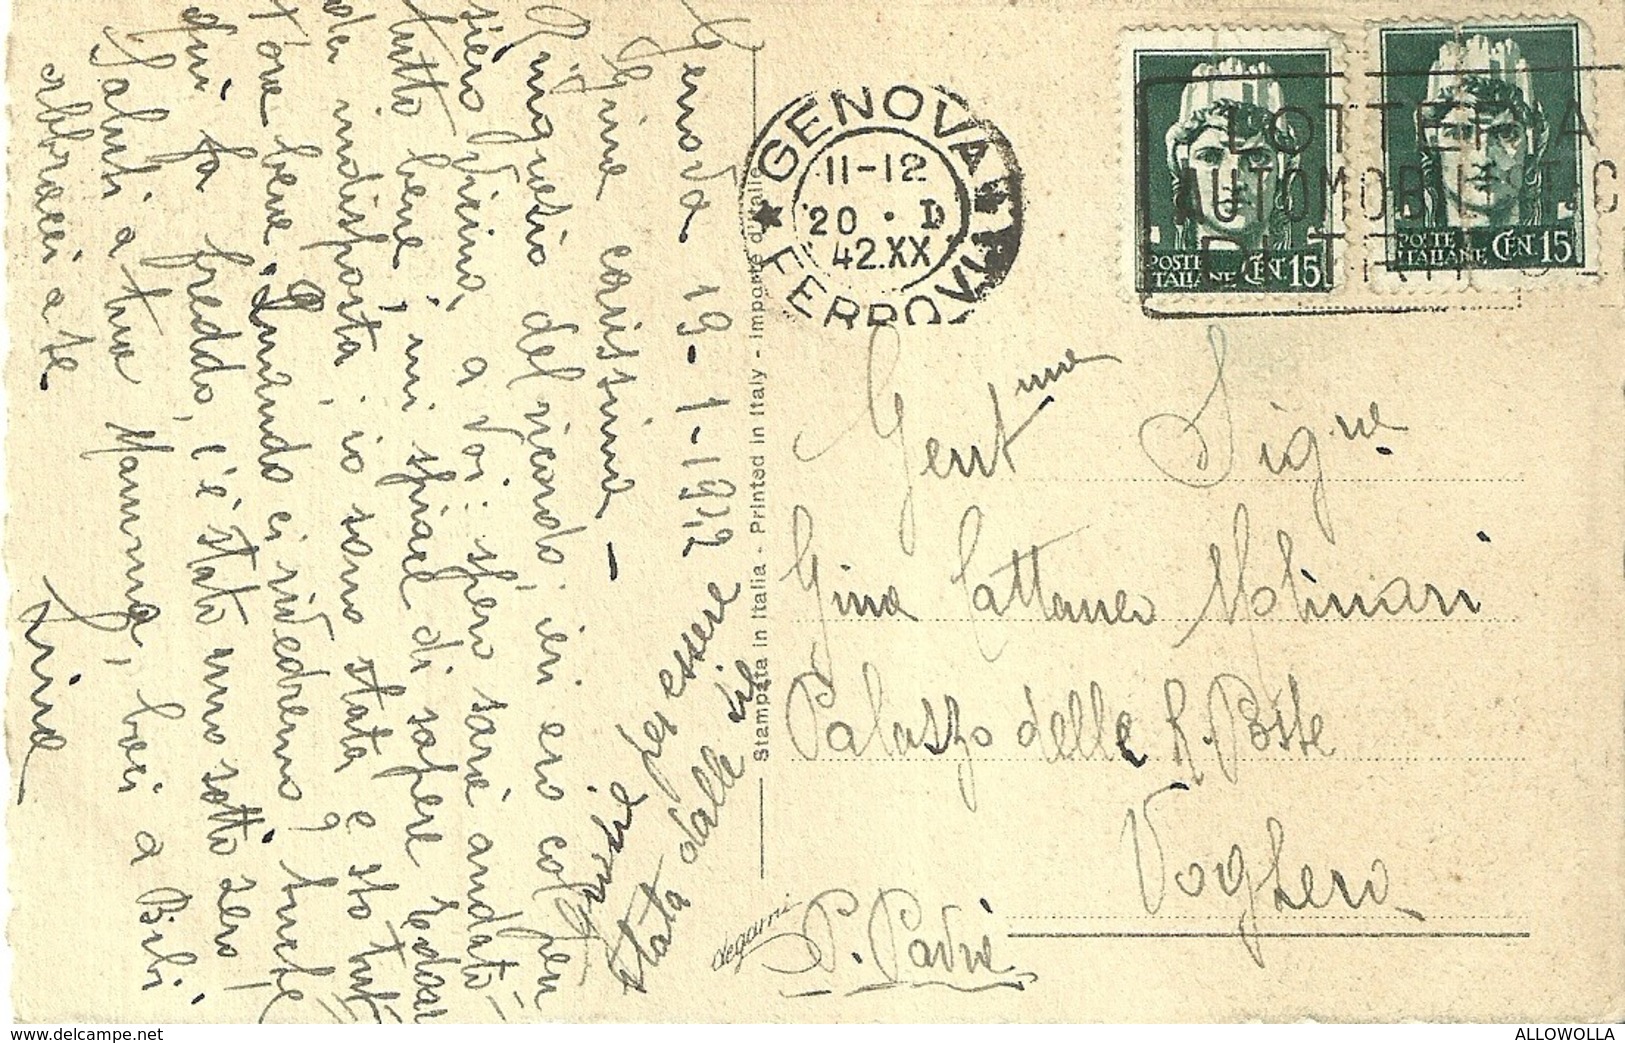 Genova 19-1-1942
Gina carissima -
Ringrazio del ricordo, ieri ero col pen
siero vicina a Voi... spero sarà andato
tutto bene, mi spiace di sapere
indisposta, io sono stata e sto
bene. Quando ci rivedremo?
Qui fa freddo, c'è stato uno sotto zero!
Saluti a tua Mamma, baci a Bibi
abbracci a te
per essere
stata dalle
Stampata in Italia - Printed in Italy - Imparté d'Italie
degami
GENOVA
FERROVIA
11-12
20 · I
42.XX
LOTTERIA
AUTOMOBILISTIC
POSTE
ITALIANE CEN 15
POSTE
ITALIANE CEN 15
Gent.me Sig.re
Gina Cattaneo Molinari
Palazzo delle R. Poste
Voghera
P. Pavia
www.delcampe.net
ALLOWOLLA